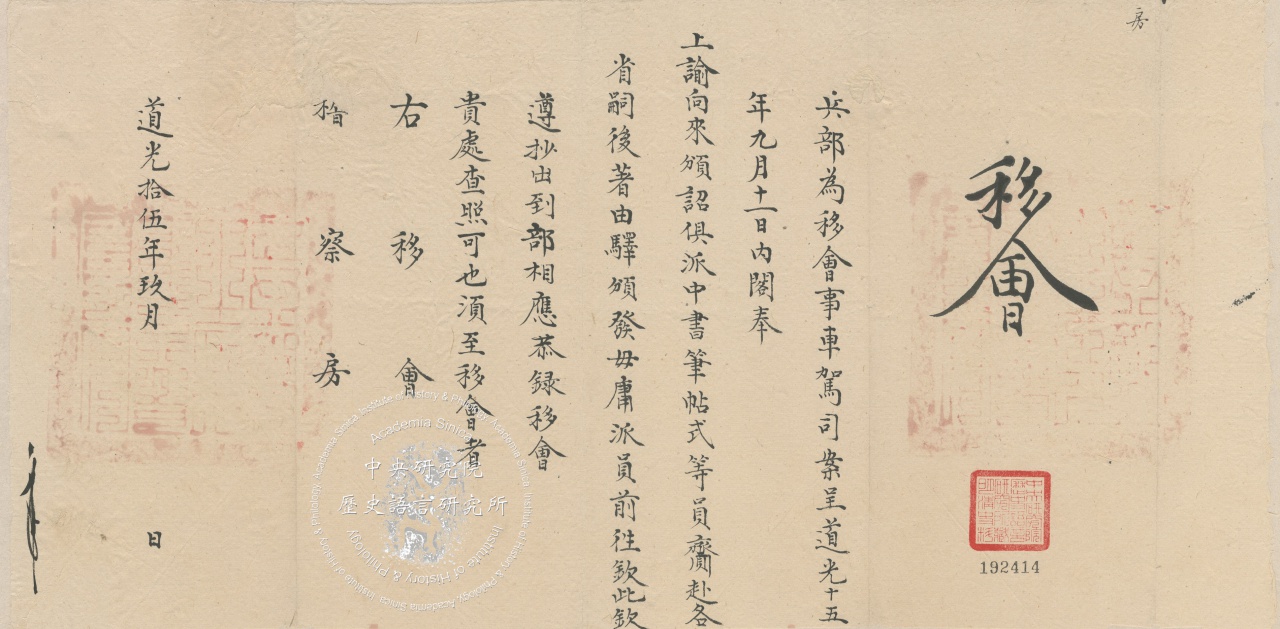 房
移會
兵部為移會事車駕司案呈道光十五
年九月十一日內閣奉
上諭向來頒詔俱派中書筆帖式等員齎赴各
省嗣後著由驛頒發毋庸派員前往欽此欽
遵抄出到部相應恭録移會
貴處查照可也須至移會者
右移會
稽察房
道光拾伍年玖月 日
192414
Academia Sinica
中央研究院
歷史語言研究所
Institute of History & Philology